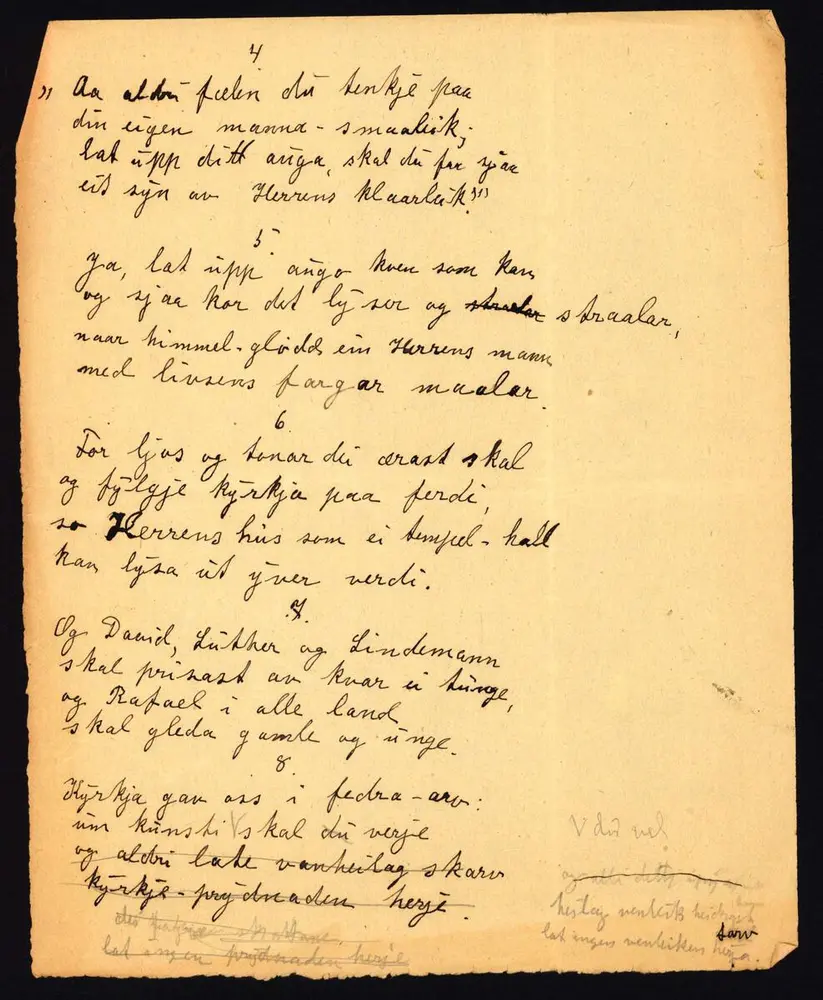 4
" Aa aldri fælin du tenkje paa
din eigen manna-smaaleik;
lat upp ditt auga, skal du faa sjaa
eit syn av Herrens klaarleik."
5
Ja, lat upp augo kven som kan
og sjaa kor det lyser og straalar straalar,
naar himmel-glødd ein Herrens mann
med livsens fargar maalar.
6
For ljos og tonar dei ærast skal
og fylgje kyrkja paa ferdi,
so Herrens hus som ei tempel-hall
kan lysa ut yver verdi.
7.
Og David, Luther og Lindemann
skal prisast av kvar ei tunge,
og Rafael i alle land
skal gleda gamle og unge.
8.
Kyrkja gav oss i fedra-arv:
um kunsti V skal du verje
V du vel
og aldri late vanheilag skarv
kyrkje-prydnaden herje.
og
heilag venleik
lat ingen venleiken herja.
tarv
lat ingen prydnaden herje